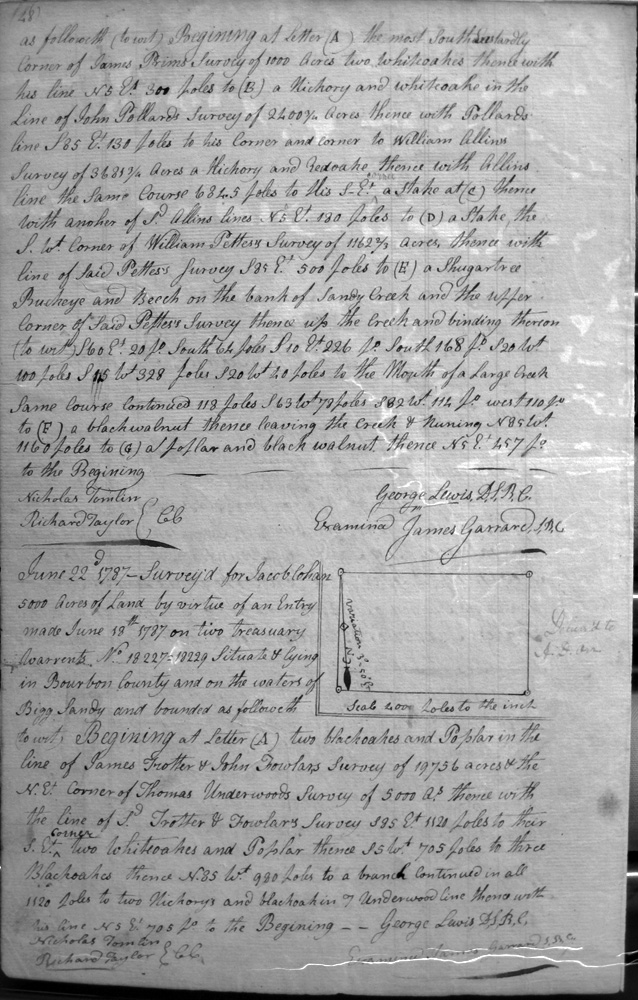 (48)
as followeth (to wit) Begining at Letter (A) the most Southwardly
Corner of James Prims Survey of 1000 Acres two Whiteoakes thence with
his line N5 Et. 300 poles to (B) a Hickory and whiteoake in the
Line of John Pollards Survey of 2400¾ Acres thence with Pollards
line S85 Et. 130 poles to his Corner and corner to William Allins
Survey of 3681¾ Acres a Hickory and Redoake, thence with Allins
line the Same Course 684.5 poles to His S-Et. a Stake at (C) thence
with anoher of Sd. Allins lines N5 Et. 180 poles to (D) a Stake, the
S. Wt. Corner of William Pettess Survey of 1162⅔ acres, thence with
line of said Pettess Survey S85 Et. 500 poles to (E) a Shugartree
Buckeye and Beech on the bank of Sandy Creek and the upper
Corner of Said Pettess Survey thence up the Creek and binding thereon
(to wit) S60 Et. 20 po. South 64 poles S10 Et. 226 po. South 168 po. S20 Wt.
100 poles S15 Wt 328 poles S20 Wt 40 poles to the Mouth of a Large Creek
Same Course continued 118 poles S63 Wt 78 poles S82 Wt. 114 po. west 110 po
to (F) a blackwalnut thence leaving the Creek & Runing N85 Wt.
1160 poles to (G) a poplar and black walnut, thence N5 Et 457 po.
to the Begining
Nicholas Tomlin
Richard Taylor } CC
George Lewis, D.S.B.C.
Examined James Garrard, S.B.C
June 22d 1787 - Survey'd for Jacob Cohan
5000 Acres of Land by virtue of an Entry
made June 18th 1787 on two treasuary
Warrents No. 18227-18229 Situate & lying
in Bourbon County and on the waters of
Bigg Sandy and bounded as followeth
Variation 3°.50' Et
Scale 400 poles to the inch
to wit, Begining at Letter (A) two blackoakes and Poplar in the
line of James Trotter & John Fowlars Survey of 19756 acres & the
N. Et Corner of Thomas Underwoods Survey of 5000 As. thence with
the line of Sd. Trotter & Fowlar's Survey S85 Et 1120 poles to their
S. Et. Corner two Whiteoakes and Poplar thence S5 Wt. 705 poles to three
Blackoakes thence N.85 Wt. 980 poles to a branch Continued in all
1120 poles to two Hickorys and blackoak in Underwood line thence with
his line N5 Et. 705 po. to the Begining -- George Lewis D.S.B.C.
Nicholas Tomlin
Richard Taylor } CC.
Examined James Garrard S.B.C